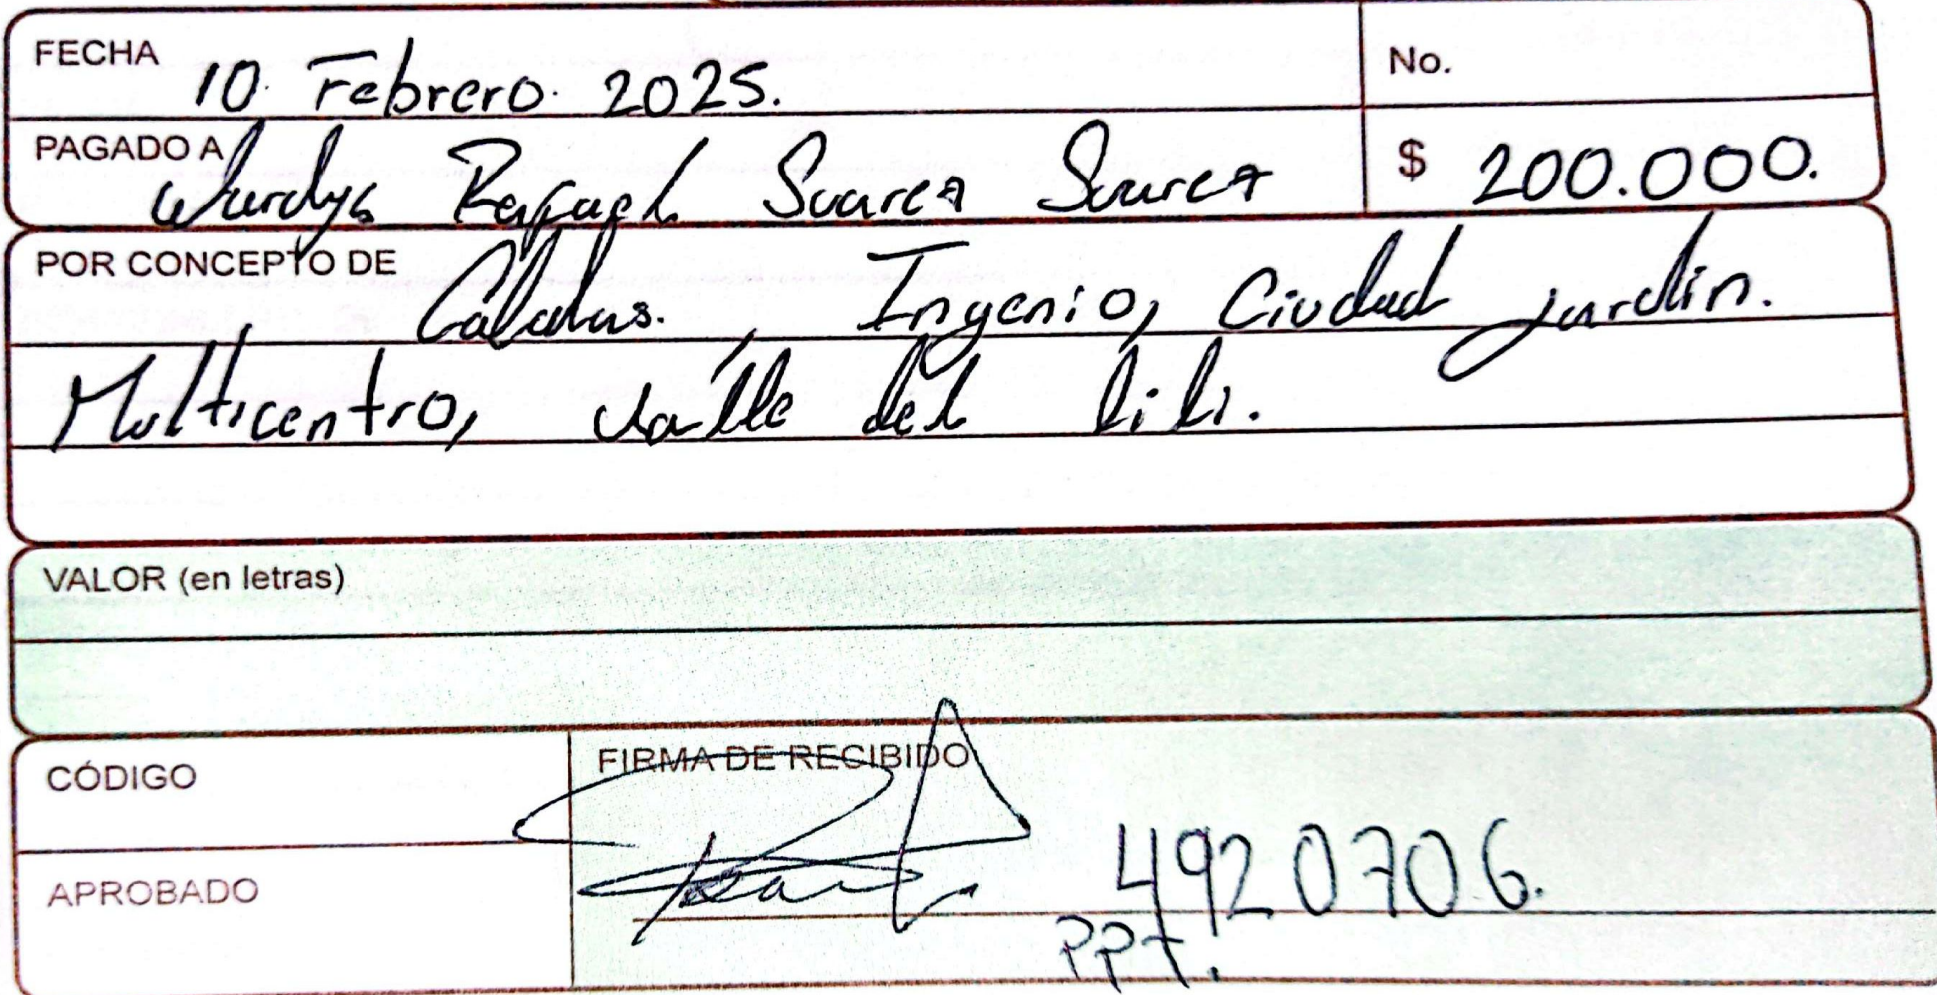 FECHA 10. Febrero. 2025. No.
PAGADO A Wurdys Rafael Suarez Suarez $ 200.000.
POR CONCEPTO DE , Caladas. , Ingenio, Ciudad jardin.
Multicentro, valle del lili.
VALOR (en letras)
CÓDIGO FIRMA DE RECIBIDO
4920706.
APROBADO
PPT.